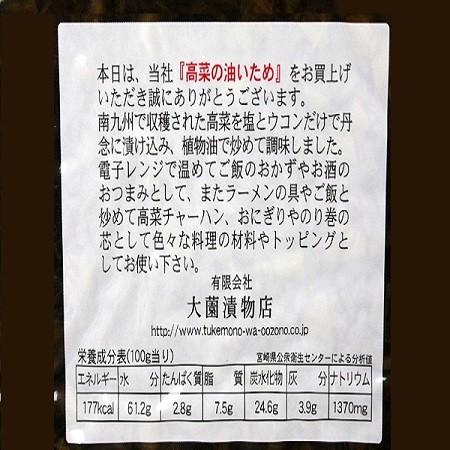 本日は、当社『高菜の油いため』をお買上げ
いただき誠にありがとうございます。
南九州で収穫された高菜を塩とウコンだけで丹
念に漬け込み、植物油で炒めて調味しました。
電子レンジで温めてご飯のおかずやお酒の
おつまみとして、またラーメンの具やご飯と
炒めて高菜チャーハン、おにぎりやのり巻の
芯として色々な料理の材料やトッピングと
してお使い下さい。
有限会社
大薗漬物店
http://www.tukemono-wa-oozono.co.jp
栄養成分表(100g当り) 宮崎県公衆衛生センターによる分析値
エネルギー 水分 たんぱく質 脂質 炭水化物 灰分 ナトリウム
177kcal 61.2g 2.8g 7.5g 24.6g 3.9g 1370mg